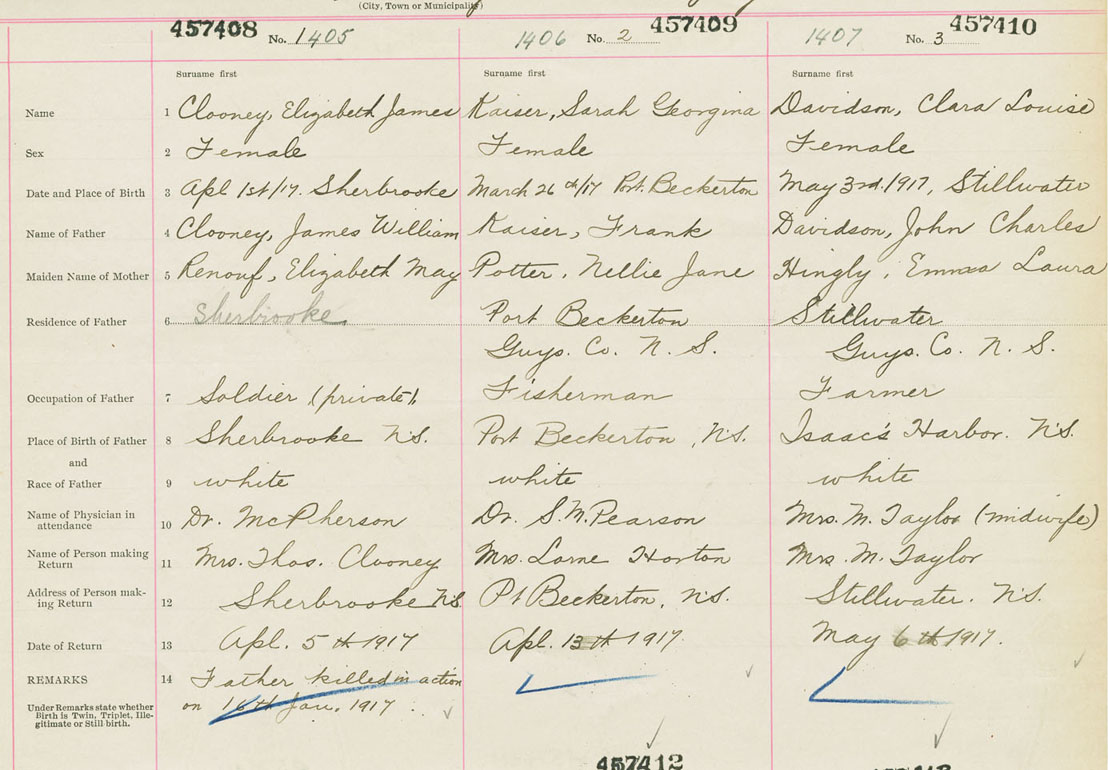 (City, Town or Municipality)
457408 No. 1405
1406 No. 2 457409
1407 No. 3 457410
Surname first Surname first Surname first
Name 1 Clooney, Elizabeth James Kaiser, Sarah Georgina Davidson, Clara Louise
Sex 2 Female Female Female
Date and Place of Birth 3 Apl 1st/17. Sherbrooke March 26th/17 Port. Beckerton May 3rd. 1917, Stillwater
Name of Father 4 Clooney, James William Kaiser, Frank Davidson, John Charles
Maiden Name of Mother 5 Renouf, Elizabeth May Potter, Nellie Jane Hingly, Emma Laura
Residence of Father 6 Sherbrooke Port Beckerton Stillwater
Guys. Co. N. S. Guys. Co. N. S.
Occupation of Father 7 Soldier (private). Fisherman Farmer
Place of Birth of Father 8 Sherbrooke N.S. Port Beckerton, N.S. Isaac's Harbor. N.S.
and
Race of Father 9 white white white
Name of Physician in
attendance 10 Dr. McPherson Dr. S. N. Pearson Mrs. M. Taylor (midwife)
Name of Person making
Return 11 Mrs. Thos. Clooney Mrs. Lorne Horton Mrs. M. Taylor
Address of Person mak-
ing Return 12 Sherbrooke N.S. Pt Beckerton, N.S. Stillwater. N.S.
Date of Return 13 Apl. 5th 1917 Apl. 13th 1917. May 6th 1917.
REMARKS 14 Father killed in action
on 16th Jan, 1917.
Under Remarks state whether
Birth is Twin, Triplet, Ille-
gitimate or Still-birth.
457412